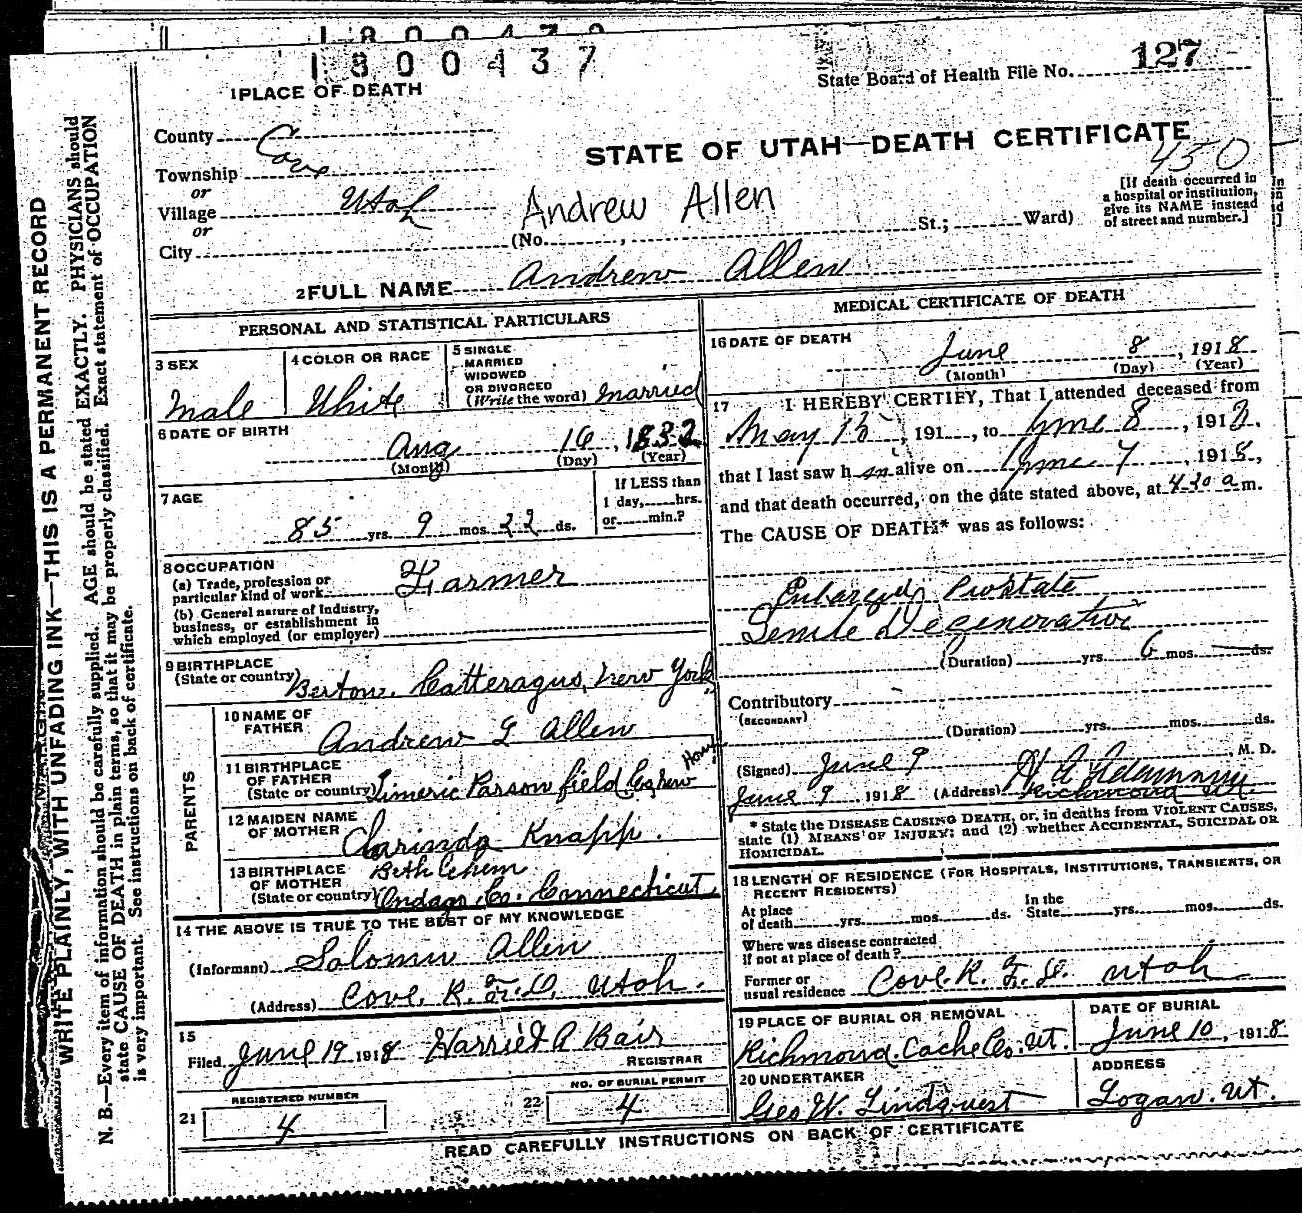 1800437
State Board of Health File No. 127
1 PLACE OF DEATH
STATE OF UTAH—DEATH CERTIFICATE
450
County
Township Cove
or
Village Utah
or
City
Andrew Allen
(No. , St.; Ward)
[If death occurred in
a hospital or institution,
give its NAME instead
of street and number.]
2 FULL NAME Andrew Allen
PERSONAL AND STATISTICAL PARTICULARS
3 SEX
Male
4 COLOR OR RACE
White
5 SINGLE
MARRIED
WIDOWED
OR DIVORCED
(Write the word) Married
6 DATE OF BIRTH
Aug 16, 1832
(Month) (Day) (Year)
7 AGE
85 yrs. 9 mos. 22 ds.
If LESS than
1 day, hrs.
or min.?
8 OCCUPATION
(a) Trade, profession or
particular kind of work Farmer
(b) General nature of Industry,
business, or establishment in
which employed (or employer)
9 BIRTHPLACE
(State or country) Berton, Catteragus, New York
PARENTS
10 NAME OF
FATHER Andrew G Allen
11 BIRTHPLACE
OF FATHER
(State or country) Limeric Parson field Co, New Ham
12 MAIDEN NAME
OF MOTHER Clarinda Knapp.
13 BIRTHPLACE
OF MOTHER
(State or country) Bethlehem
Ondago Co. Connecticut
14 THE ABOVE IS TRUE TO THE BEST OF MY KNOWLEDGE
(Informant) Solomon Allen
(Address) Cove. R. F. D. Utah.
15
Filed June 19 1918 Harriet A Bair
REGISTRAR
21 REGISTERED NUMBER
4
22 NO. OF BURIAL PERMIT
4
MEDICAL CERTIFICATE OF DEATH
16 DATE OF DEATH
June 8, 1918
(Month) (Day) (Year)
17 I HEREBY CERTIFY, That I attended deceased from
May 15, 191 , to June 8, 1918,
that I last saw h im alive on June 7, 1918,
and that death occurred, on the date stated above, at 4 30 a m.
The CAUSE OF DEATH* was as follows:
Enlarged Prostate
Senile Degenerative
(Duration) yrs. 6 mos. ds.
Contributory
(SECONDARY)
(Duration) yrs. mos. ds.
(Signed) June 9 , M. D.
June 9 1918 (Address) Richmond Ut.
* State the DISEASE CAUSING DEATH, or, in deaths from VIOLENT CAUSES,
state (1) MEANS OF INJURY; and (2) whether ACCIDENTAL, SUICIDAL OR
HOMICIDAL.
18 LENGTH OF RESIDENCE (FOR HOSPITALS, INSTITUTIONS, TRANSIENTS, OR
RECENT RESIDENTS)
At place
of death yrs. mos. ds.
In the
State yrs. mos. ds.
Where was disease contracted
if not at place of death?
Former or
usual residence Cove. R. F. D. Utah
19 PLACE OF BURIAL OR REMOVAL
Richmond. Cache Co. UT.
DATE OF BURIAL
June 10, 1918
20 UNDERTAKER
Geo W. Lindquest
ADDRESS
Logan. Ut.
READ CAREFULLY INSTRUCTIONS ON BACK OF CERTIFICATE
WRITE PLAINLY, WITH UNFADING INK—THIS IS A PERMANENT RECORD
N. B.—Every item of information should be carefully supplied. AGE should be stated EXACTLY. PHYSICIANS should
state CAUSE OF DEATH in plain terms, so that it may be properly classified. Exact statement of OCCUPATION
is very important. See instructions on back of certificate.